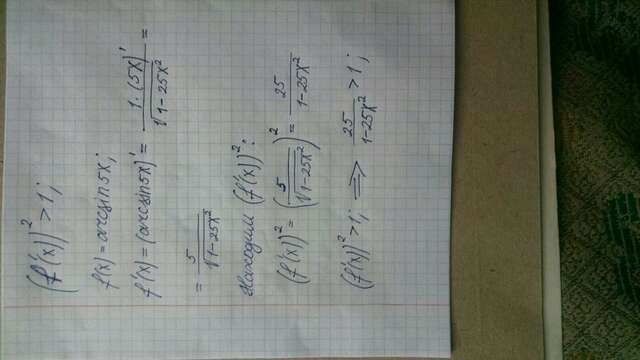 (f'(x))² > 1;
f(x) = arcsin 5x;
f'(x) = (arcsin 5x)' = 1·(5x)' / √(1-25x²) =
= 5 / √(1-25x²)
Находим (f'(x))²:
(f'(x))² = (5 / √(1-25x²))² = 25 / (1-25x²)
(f'(x))² > 1; ⟹ 25 / (1-25x²) > 1;